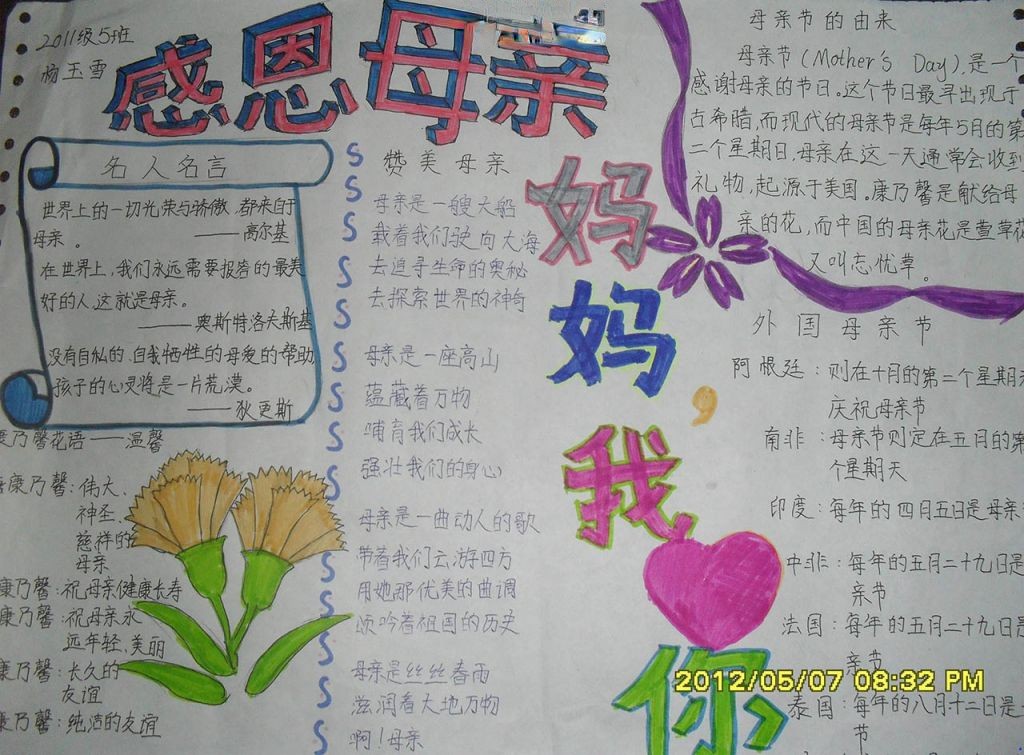 2011级5班
杨玉雪
感恩母亲
名人名言
世界上的一切光荣与骄傲,都来自于
母亲。
——高尔基
在世界上,我们永远需要报答的最美
好的人这就是母亲。
——奥斯特洛夫斯基
没有自私的、自我牺牲的母爱的帮助
孩子的心灵将是一片荒漠。
——狄更斯
康乃馨花语——温馨
康乃馨:伟大、
神圣、
慈祥的
母亲
康乃馨:祝母亲健康长寿
康乃馨:祝母亲永
远年轻、美丽
康乃馨:长久的
友谊
康乃馨:纯洁的友谊
赞美母亲
母亲是一艘大船
载着我们驶向大海
去追寻生命的奥秘
去探索世界的神奇
母亲是一座高山
蕴藏着万物
哺育我们成长
强壮我们的身心
母亲是一曲动人的歌
带着我们云游四方
用她那优美的曲调
颂吟着祖国的历史
母亲是丝丝春雨
滋润着大地万物
啊!母亲
妈
妈,
我
你
母亲节的由来
母亲节(Mother's Day),是一个
感谢母亲的节日。这个节日最早出现于
古希腊,而现代的母亲节是每年5月的第
二个星期日,母亲在这一天通常会收到
礼物,起源于美国。康乃馨是献给母
亲的花,而中国的母亲花是萱草花
又叫忘忧草。
外国母亲节
阿根廷:则在十月的第二个星期天
庆祝母亲节
南非:母亲节则定在五月的第
个星期天
印度:每年的四月五日是母亲
中非:每年的五月二十九日是
亲节
法国:每年的五月二十九日是
亲节
泰国:每年的八月十二日是
节
2012/05/07 08:32 PM